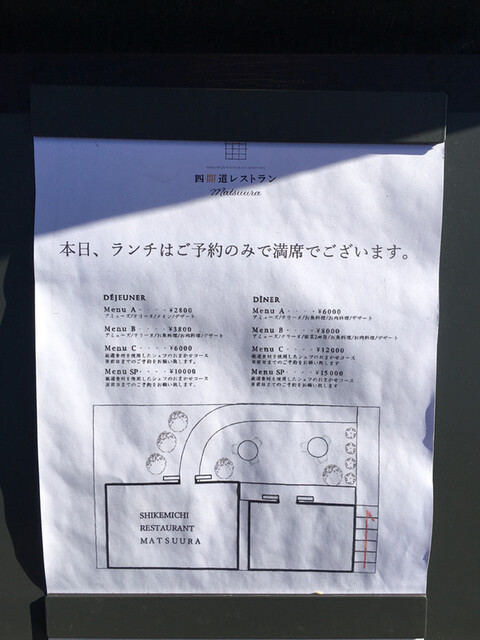 四間道レストラン
Matsuura
本日、ランチはご予約のみで満席でございます。
DÉJEUNER
Menu A・・・・¥2800
アミューズ/テリーヌ/メイン/デザート
Menu B・・・・¥3800
アミューズ/テリーヌ/お魚料理/お肉料理/デザート
Menu C・・・・¥6000
厳選食材を使用したシェフのおまかせコース
※前日までのご予約をお願い致します。
Menu SP・・・・¥10000
厳選食材を使用したシェフのおまかせコース
※前日までのご予約をお願い致します。
DÎNER
Menu A・・・・¥6000
アミューズ/テリーヌ/お魚料理/お肉料理/デザート
Menu B・・・・¥8000
アミューズ/テリーヌ/前菜2皿目/お魚料理/お肉料理/デザート
Menu C・・・・¥12000
厳選食材を使用したシェフのおまかせコース
※前日までのご予約をお願い致します
Menu SP・・・・¥15000
厳選食材を使用したシェフのおまかせコース
※前日までのご予約をお願い致します
SHIKEMICHI
RESTAURANT
MATSUURA